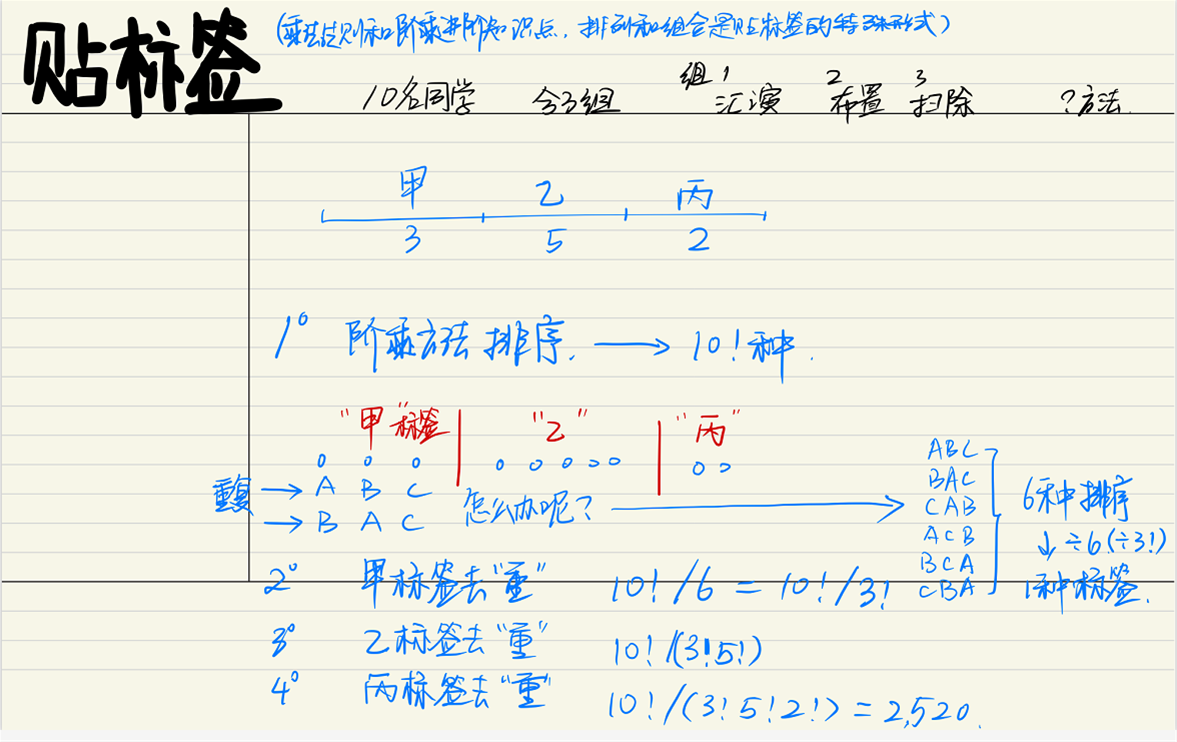 贴标签
(乘法法则和阶乘进阶知识点，排列和组合是贴标签的特殊形式)
10名同学 分3组 组1汇演 2布置 3扫除 ?方法.
甲 乙 丙
3 5 2
1° 阶乘方法排序. → 10!种.
"甲"标签 "乙" "丙"
重复 → A B C
→ B A C 怎么办呢? →
ABC
BAC
CAB
ACB
BCA
CBA
6种排序
↓÷6(÷3!)
1种标签.
2° 甲标签去"重" 10!/6 = 10!/3!
3° 乙标签去"重" 10!/(3!5!)
4° 丙标签去"重" 10!/(3!5!2!) = 2,520.